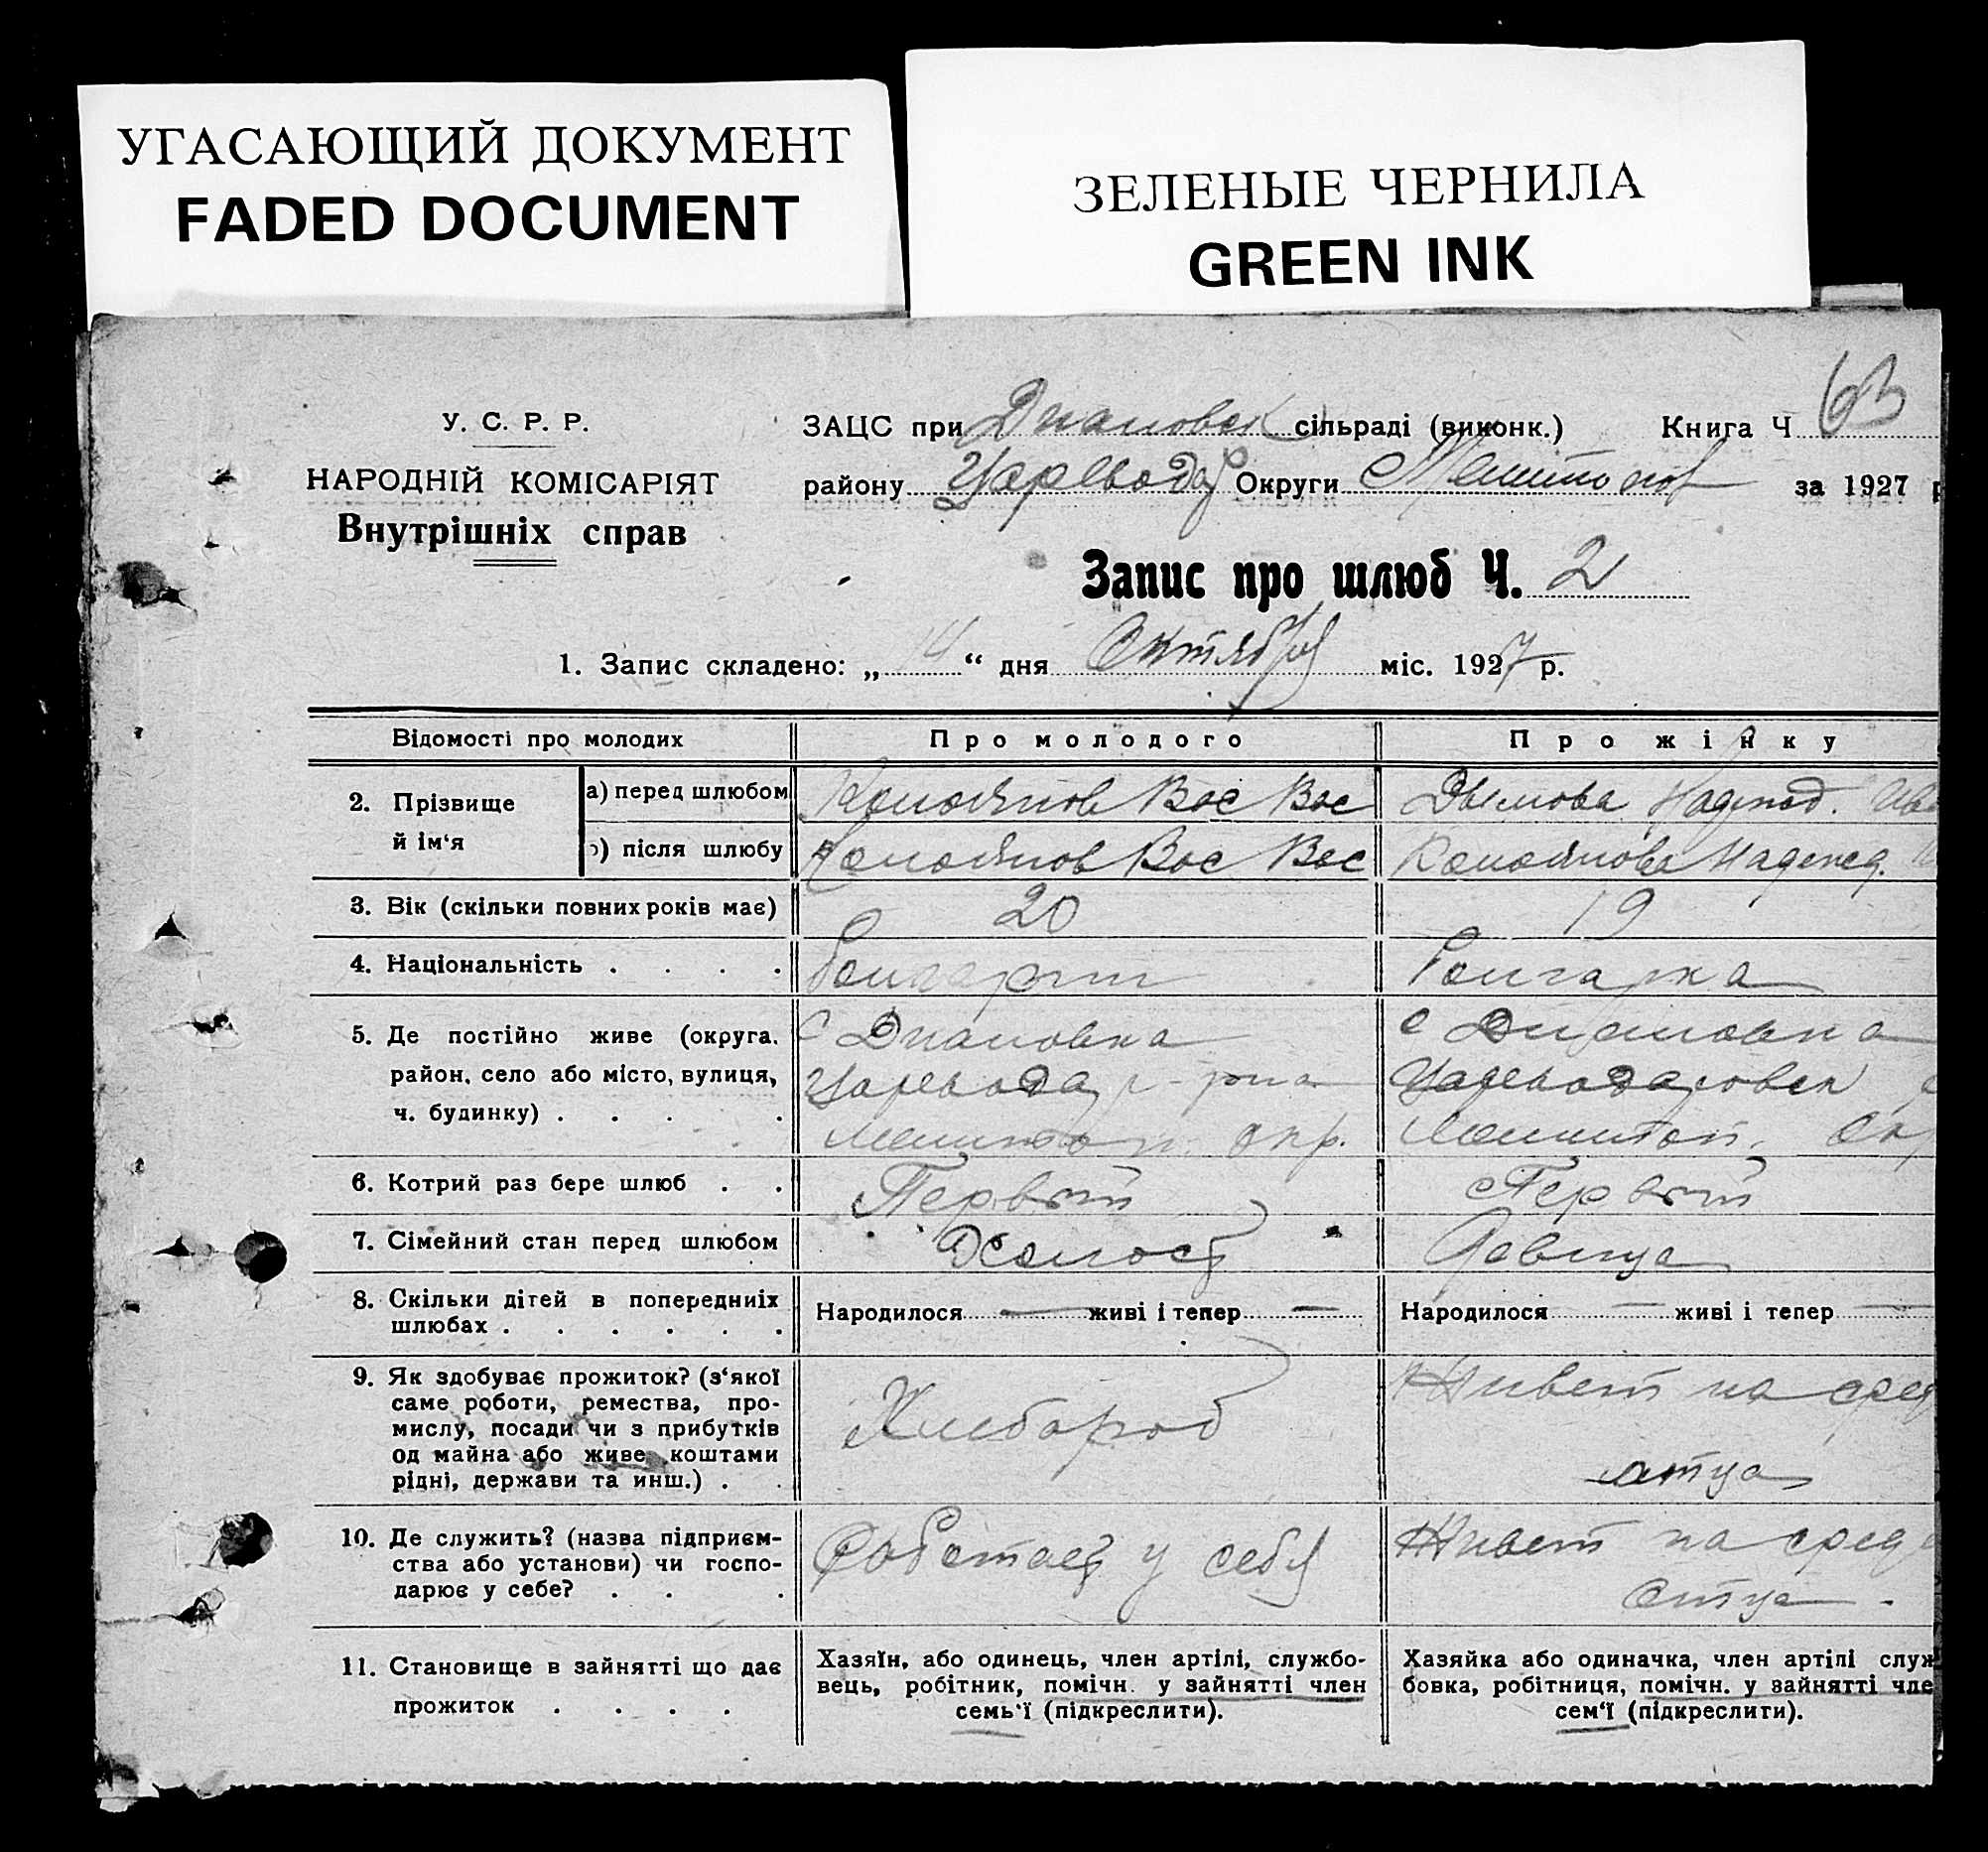 УГАСАЮЩИЙ ДОКУМЕНТ
FADED DOCUMENT
ЗЕЛЕНЫЕ ЧЕРНИЛА
GREEN INK
У. С. Р. Р.
НАРОДНІЙ КОМІСАРІЯТ
Внутрішніх справ
ЗАЦС при Диановск сільраді (виконк.) Книга Ч 63
району Царевода Округи Мелитопол за 1927 р
Запис про шлюб Ч. 2
1. Запис складено: „ 14 “ дня Октября міс. 1927 р.
Відомості про молодих
Про молодого
Про жінку
2. Прізвище й ім‘я
а) перед шлюбом
Вас Вас
Дымова Надежд. Ива
б) після шлюбу
Вас Вас
Надежд.
3. Вік (скільки повних років має) 20 19
4. Національність . . . . Болгарин Болгарка
5. Де постійно живе (округа,
район, село або місто, вулиця,
ч. будинку) . . . .
с Диановка
Царевода р-на
Мелитоп. окр.
с Диановка
Цареводаровск р
Мелитоп. Ок
6. Котрий раз бере шлюб . . Первый Первый
7. Сімейний стан перед шлюбом Холост Девица
8. Скільки дітей в попередниіх
шлюбах . . . . . .
Народилося — живі і тепер —
Народилося — живі і тепер —
9. Як здобуває прожиток? (з‘якої
саме роботи, ремества, про-
мислу, посади чи з прибутків
од майна або живе коштами
рідні, держави та инш.) . .
Хлебороб
Живет на сред
отца
10. Де служить? (назва підприєм-
ства або установи) чи госпо-
дарює у себе? . . .
Работает у себя
Живет на сред
отца .
11. Становище в зайнятті що дає
прожиток . . . .
Хазяїн, або одинець, член артілі, службо-
вець, робітник, помічн. у зайнятті член
семь‘ї (підкреслити).
Хазяйка або одиначка, член артілі служ
бовка, робітниця, помічн. у зайнятті чле
сем‘ї (підкреслити).